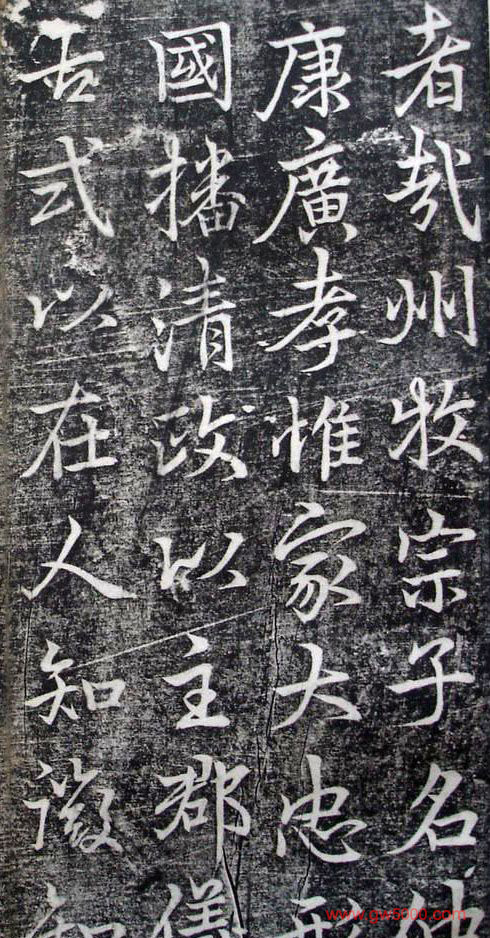 者哉州牧宗子名仲
康廣孝惟家大忠形
國播清政以主郡儀
古式以在人知徵知
www.gw5000.com